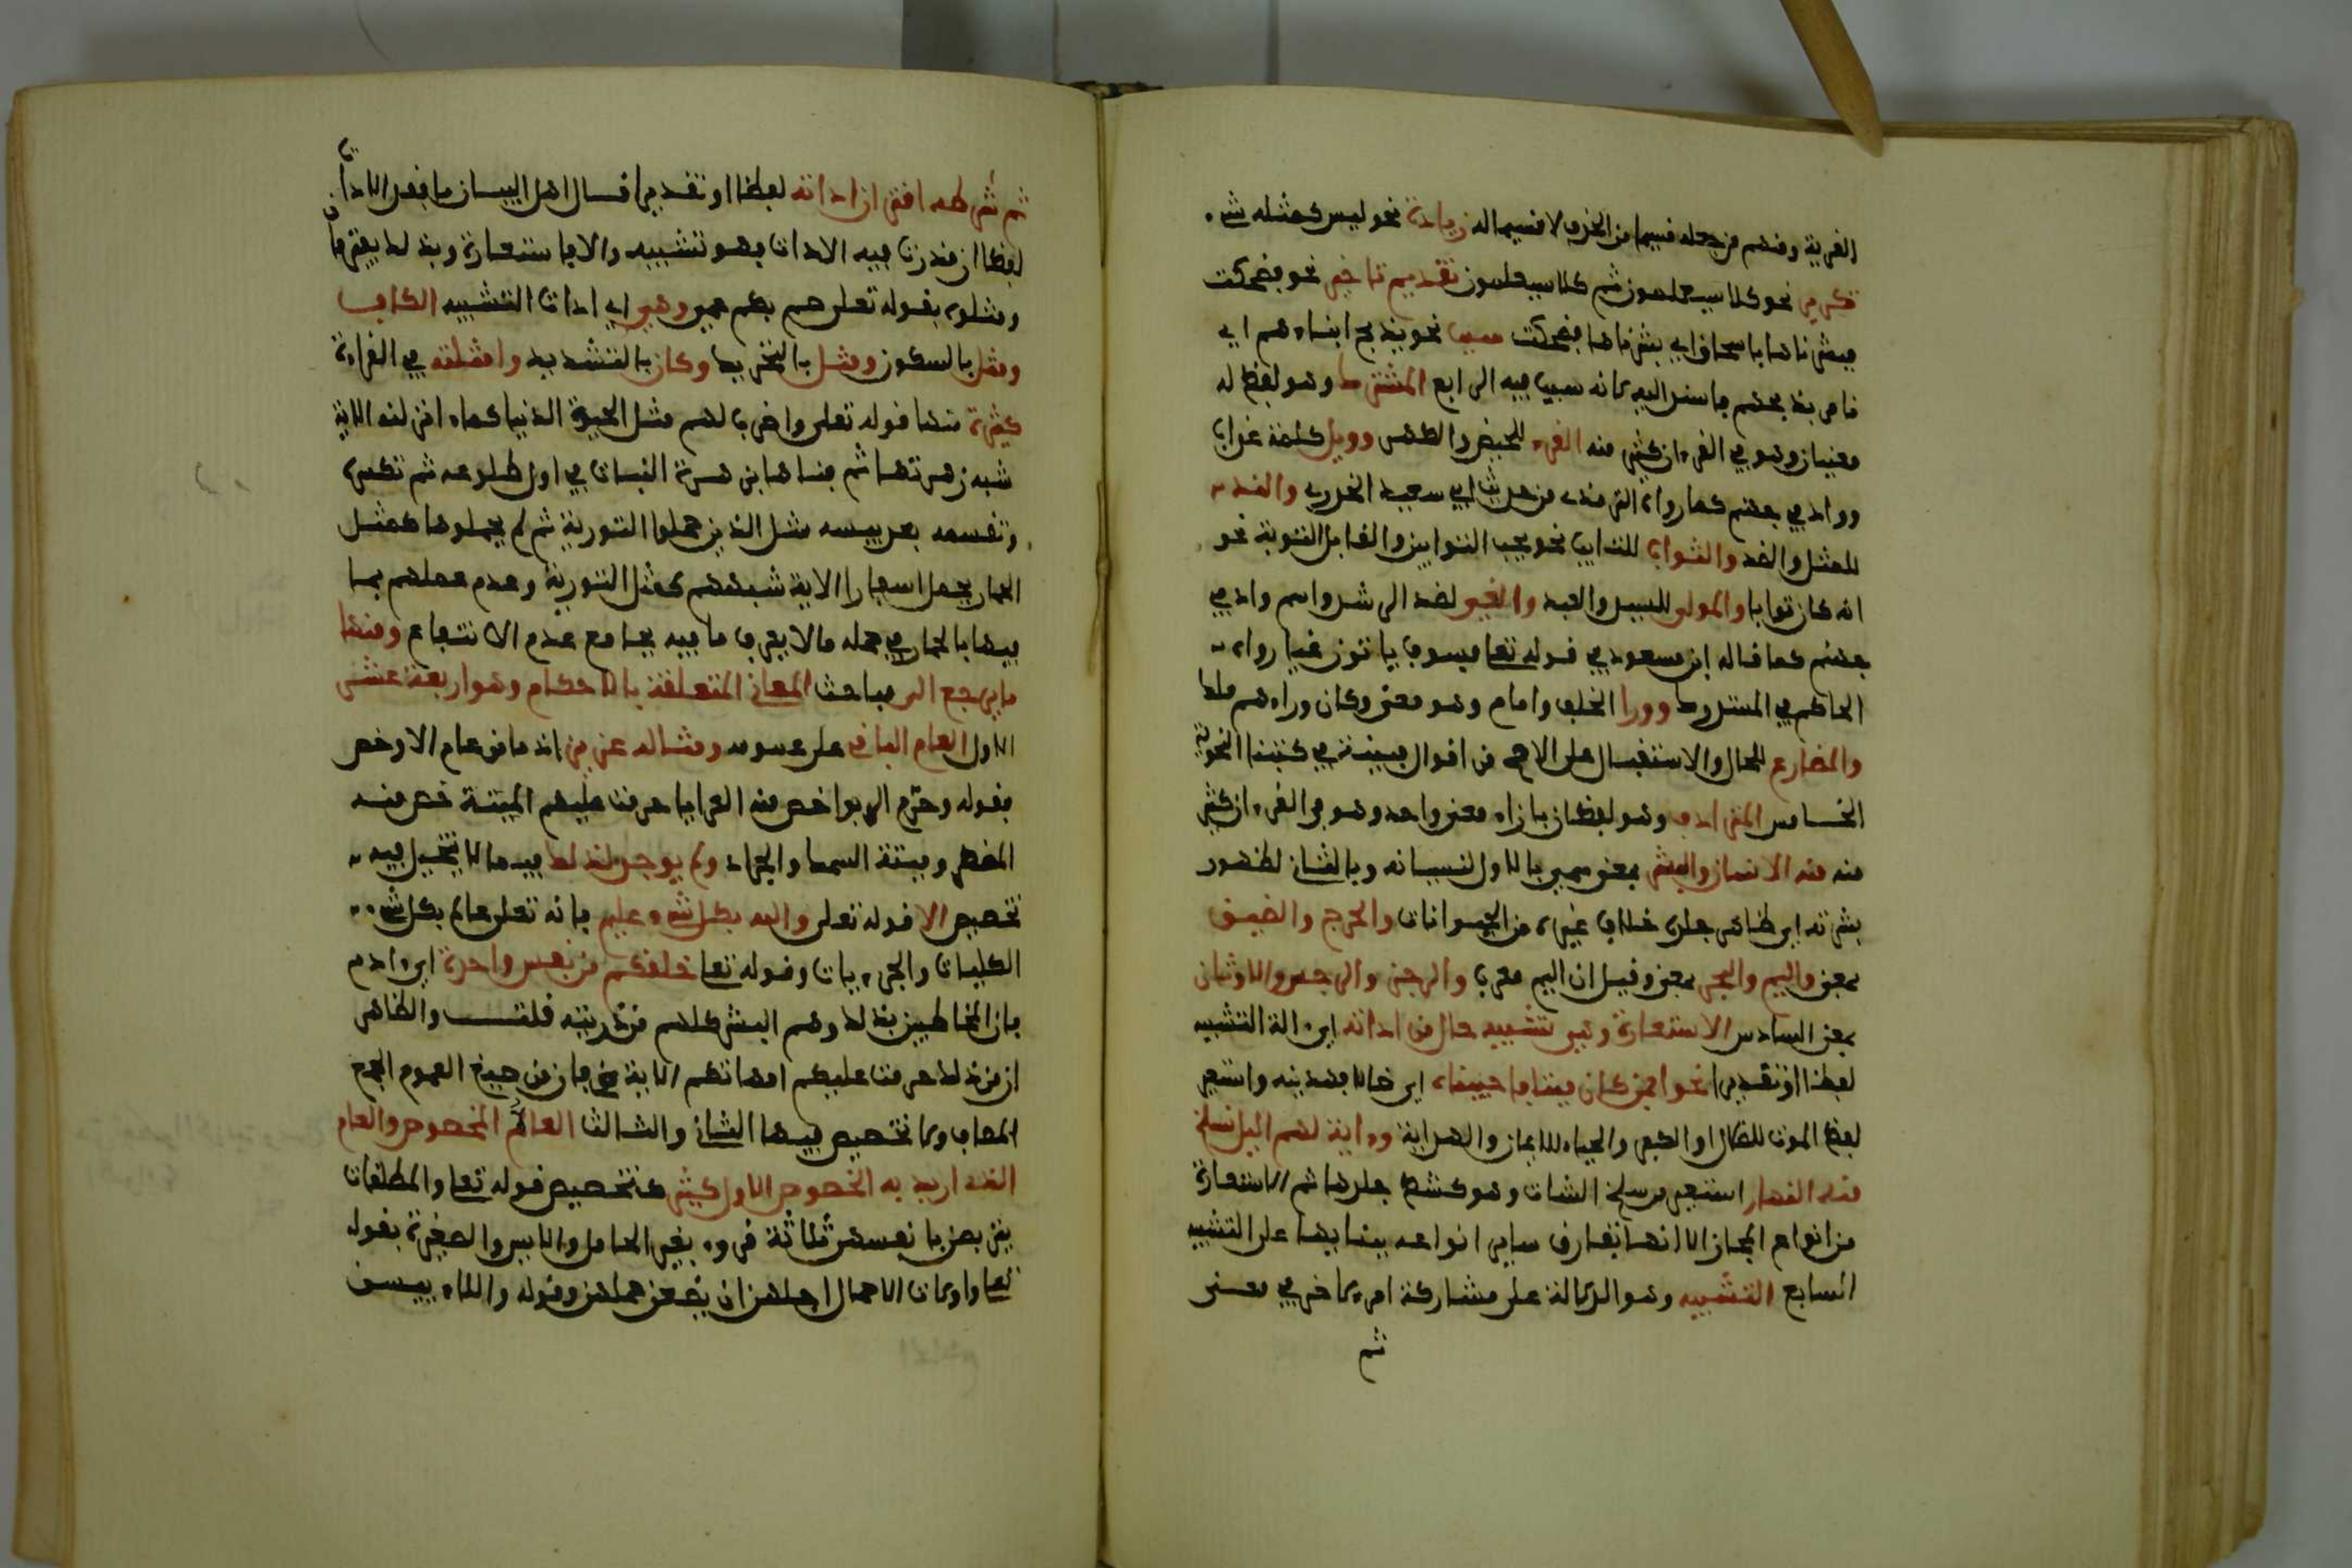 القرية ومنهم من جعله قسيما من الحذف لا قسيما له زيادة نحو ليس كمثله شيء
تكرير نحو كلا سيعلمون ثم كلا سيعلمون تقديم تاخير نحو فضحكت
فبشرناها باسحاق اي بشرناها فضحكت سبب نحو يذبح ابناءهم اي
يامر بذبحهم فاسند اليه لانه سبب فيه الرابع المشترك وهو لفظ له
معنيان وهو في القرءان كثير منه القرء للحيض والطهر وويل كلمة عذاب
وواد في جهنم كما رواه الترمذي من حديث ابي سعيد الخدري والند
للمثل والضد والتواب للتايب نحو يحب التوابين والقابل التوبة نحو
انه كان توابا والمولى للسيد والعبد والغي لضد الرشد واسم واد في
جهنم كما قاله ابن مسعود في قوله تعا فسوف يلقون غيا رواه
الحاكم في المستدرك وورا لخلف وامام وهو معنى وكان وراءهم ملك
والمضارع للحال والاستقبال على الاصح من اقوال مبينة في كتبنا النحوية
الخامس المترادف وهو لفظان بازاء معنى واحد وهو في القرءان كثير
منه الانسان والبشر بمعنى سمي بالاول لنسيانه وبالثاني لظهور
بشرته اي ظاهر جلده خلاف غيره من الحيوانات والحرج والضيق
بمعنى واليم والبحر بمعنى وقيل ان اليم معرب والرجز والرجس والاوثان
بمعنى السادس الاستعارة وهي تشبيه خال من اداته اي ءالة التشبيه
لفظا او تقديرا نحو اومن كان ميتا فاحييناه اي ضالا فهديناه واستعير
لفظ الموت للضلال او الكفر والحياة للايمان والهداية وءاية لهم اليل نسلخ
منه النهار استعير من سلخ الشاة وهو كشط جلدها ثم الاستعارة
من انواع المجاز الا انها تفارق ساير انواعه ببنايها على التشبيه
السابع التشبيه وهو الدلالة على مشاركة امر لاخر في معنى
ثم
ثم شرطه اقتران اداته لفظا او تقديرا قال اهل البيان ما فقد الاداة
لفظا ان قدرت فيه الاداة فهو تشبيه والا فاستعارة وبذلك يفترقان
ومثلوه بقوله تعلى صم بكم عمي وهي اي اداة التشبيه الكاف
ومثل بالسكون ومثل بالتحريك وكان بالتشديد وامثلته في القرءان
كثيرة منها قوله تعلى واضرب لهم مثل الحيوة الدنيا كماء انزلنه الاية
شبه زهرتها ثم فناها بزهرة النبات في اول طلوعه ثم تكسره
وتفسمه بعد يبسه مثل الذين حملوا التورية ثم لم يحملوها كمثل
الحمار يحمل اسفارا الاية شبههم لحمل التورية وعدم عملهم بما
فيها بالحمار في حمله ما لا يعرف ما فيه بجامع عدم الانتفاع ومنها
ما يرجع الى مباحث المعاني المتعلقة بالاحكام وهو اربعة عشر
الاول العام الباقي على عمومه ومثاله عزيز اذ ما من عام الا وخص
فقوله وحرم الربوا خص منه العرايا حرمت عليكم الميتة خص منه
المضطر وميتة السمك والجراد ولم يوجد لذلك فيه ما لا يتخيل فيه
تخصيص الا قوله تعلى والله بكل شيء عليم فانه تعلى عالم بكل شيء
الكليات والجزءيات وقوله تعا خلقكم من نفس واحدة اي ءادم
فان المخاطبين بذلك وهم البشر كلهم من ذريته قلت والظاهر
ان من ذلك حرمت عليكم امهاتكم الاية فان من صيغ العموم الجمع
المضاف ولا تخصيص فيها الثاني والثالث العام المخصوص والعام
الذي اريد به الخصوص الاول كثير كتخصيص قوله تعا والمطلقات
يتربصن بانفسهن ثلاثة قروء بغير الحامل والايس والصغيرة بقوله
تعا واولات الاحمال اجلهن ان يضعن حملهن وقوله والاء يئسن